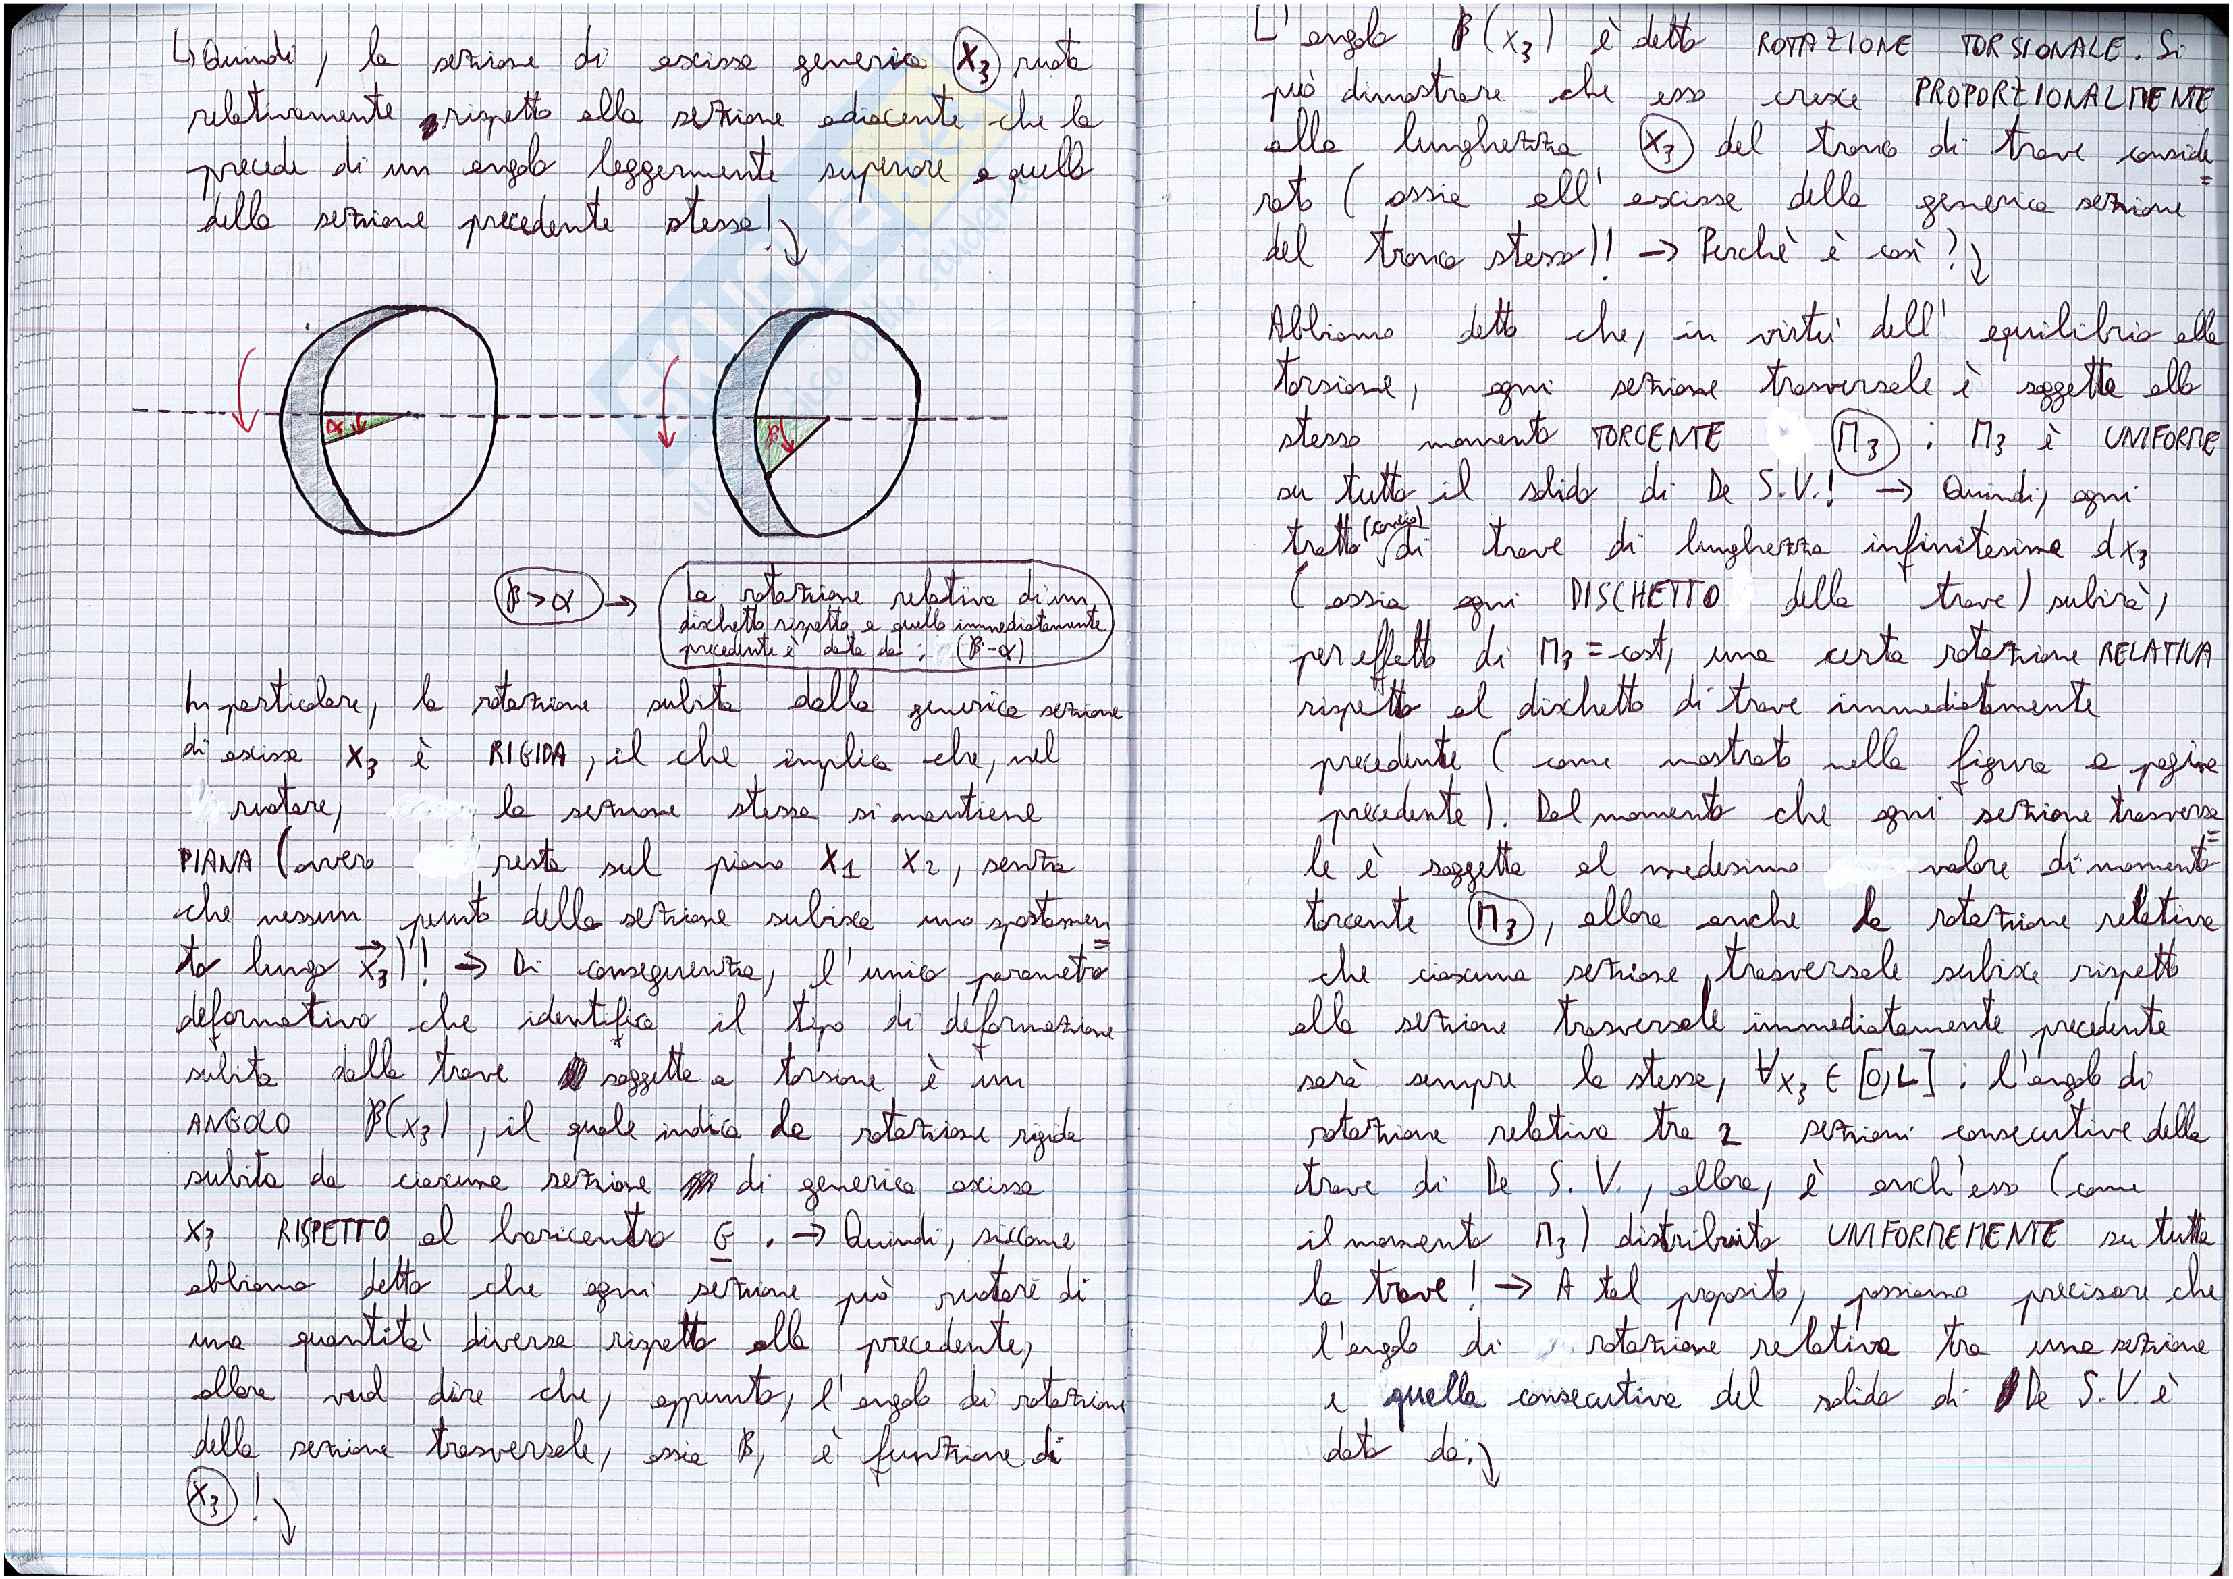 ↳ Quindi, la sezione di ascissa generica X3 ruota
relativamente rispetto alla sezione adiacente che la
precede di un angolo leggermente superiore a quello
della sezione precedente stessa! ↓
α
β
β > α → La rotazione relativa di un
dischetto rispetto a quello immediatamente
precedente è data da: (β-α)
In particolare, la rotazione subita dalla generica sezione
di ascissa X3 è RIGIDA, il che implica che, nel
ruotare, la sezione stessa si mantiene
PIANA (ovvero resta sul piano X1 X2, senza
che nessun punto della sezione subisca uno spostamen=
to lungo X3)! → Di conseguenza, l'unico parametro
deformativo che identifica il tipo di deformazione
subita dalla trave soggetta a torsione è un
ANGOLO β(X3), il quale indica la rotazione rigida
subita da ciascuna sezione di generica ascissa
X3 RISPETTO al baricentro G. → Quindi, siccome
abbiamo detto che ogni sezione può ruotare di
una quantità diversa rispetto alla precedente,
allora vuol dire che, appunto, l'angolo di rotazione
della sezione trasversale, ossia β, è funzione di
X3! ↓
L'angolo β(X3) è detto ROTAZIONE TORSIONALE. Si
può dimostrare che esso cresce PROPORZIONALMENTE
alla lunghezza X3 del tronco di trave conside=
rato (ossia all'ascissa della generica sezione
del tronco stesso)! → Perchè è così? ↓
Abbiamo detto che, in virtù dell'equilibrio alla
torsione, ogni sezione trasversale è soggetta allo
stesso momento TORCENTE M3 : M3 è UNIFORME
su tutto il solido di De S.V.! → Quindi, ogni
tratto (concio) di trave di lunghezza infinitesima dx3
(ossia ogni DISCHETTO della trave) subirà,
per effetto di M3 = cost, una certa rotazione RELATIVA
rispetto al dischetto di trave immediatamente
precedente (come mostrato nella figura a pagina
precedente). Dal momento che ogni sezione trasversa=
le è soggetta al medesimo valore di momento
torcente M3, allora anche la rotazione relativa
che ciascuna sezione trasversale subisce rispetto
alla sezione trasversale immediatamente precedente
sarà sempre la stessa, ∀x3 ∈ [0,L] : l'angolo di
rotazione relativa tra 2 sezioni consecutive della
trave di De S.V., allora, è anch'esso (come
il momento M3) distribuito UNIFORMEMENTE su tutta
la trave! → A tal proposito, possiamo precisare che
l'angolo di rotazione relativa tra una sezione
e quella consecutiva del solido di De S.V. è
dato da: ↓